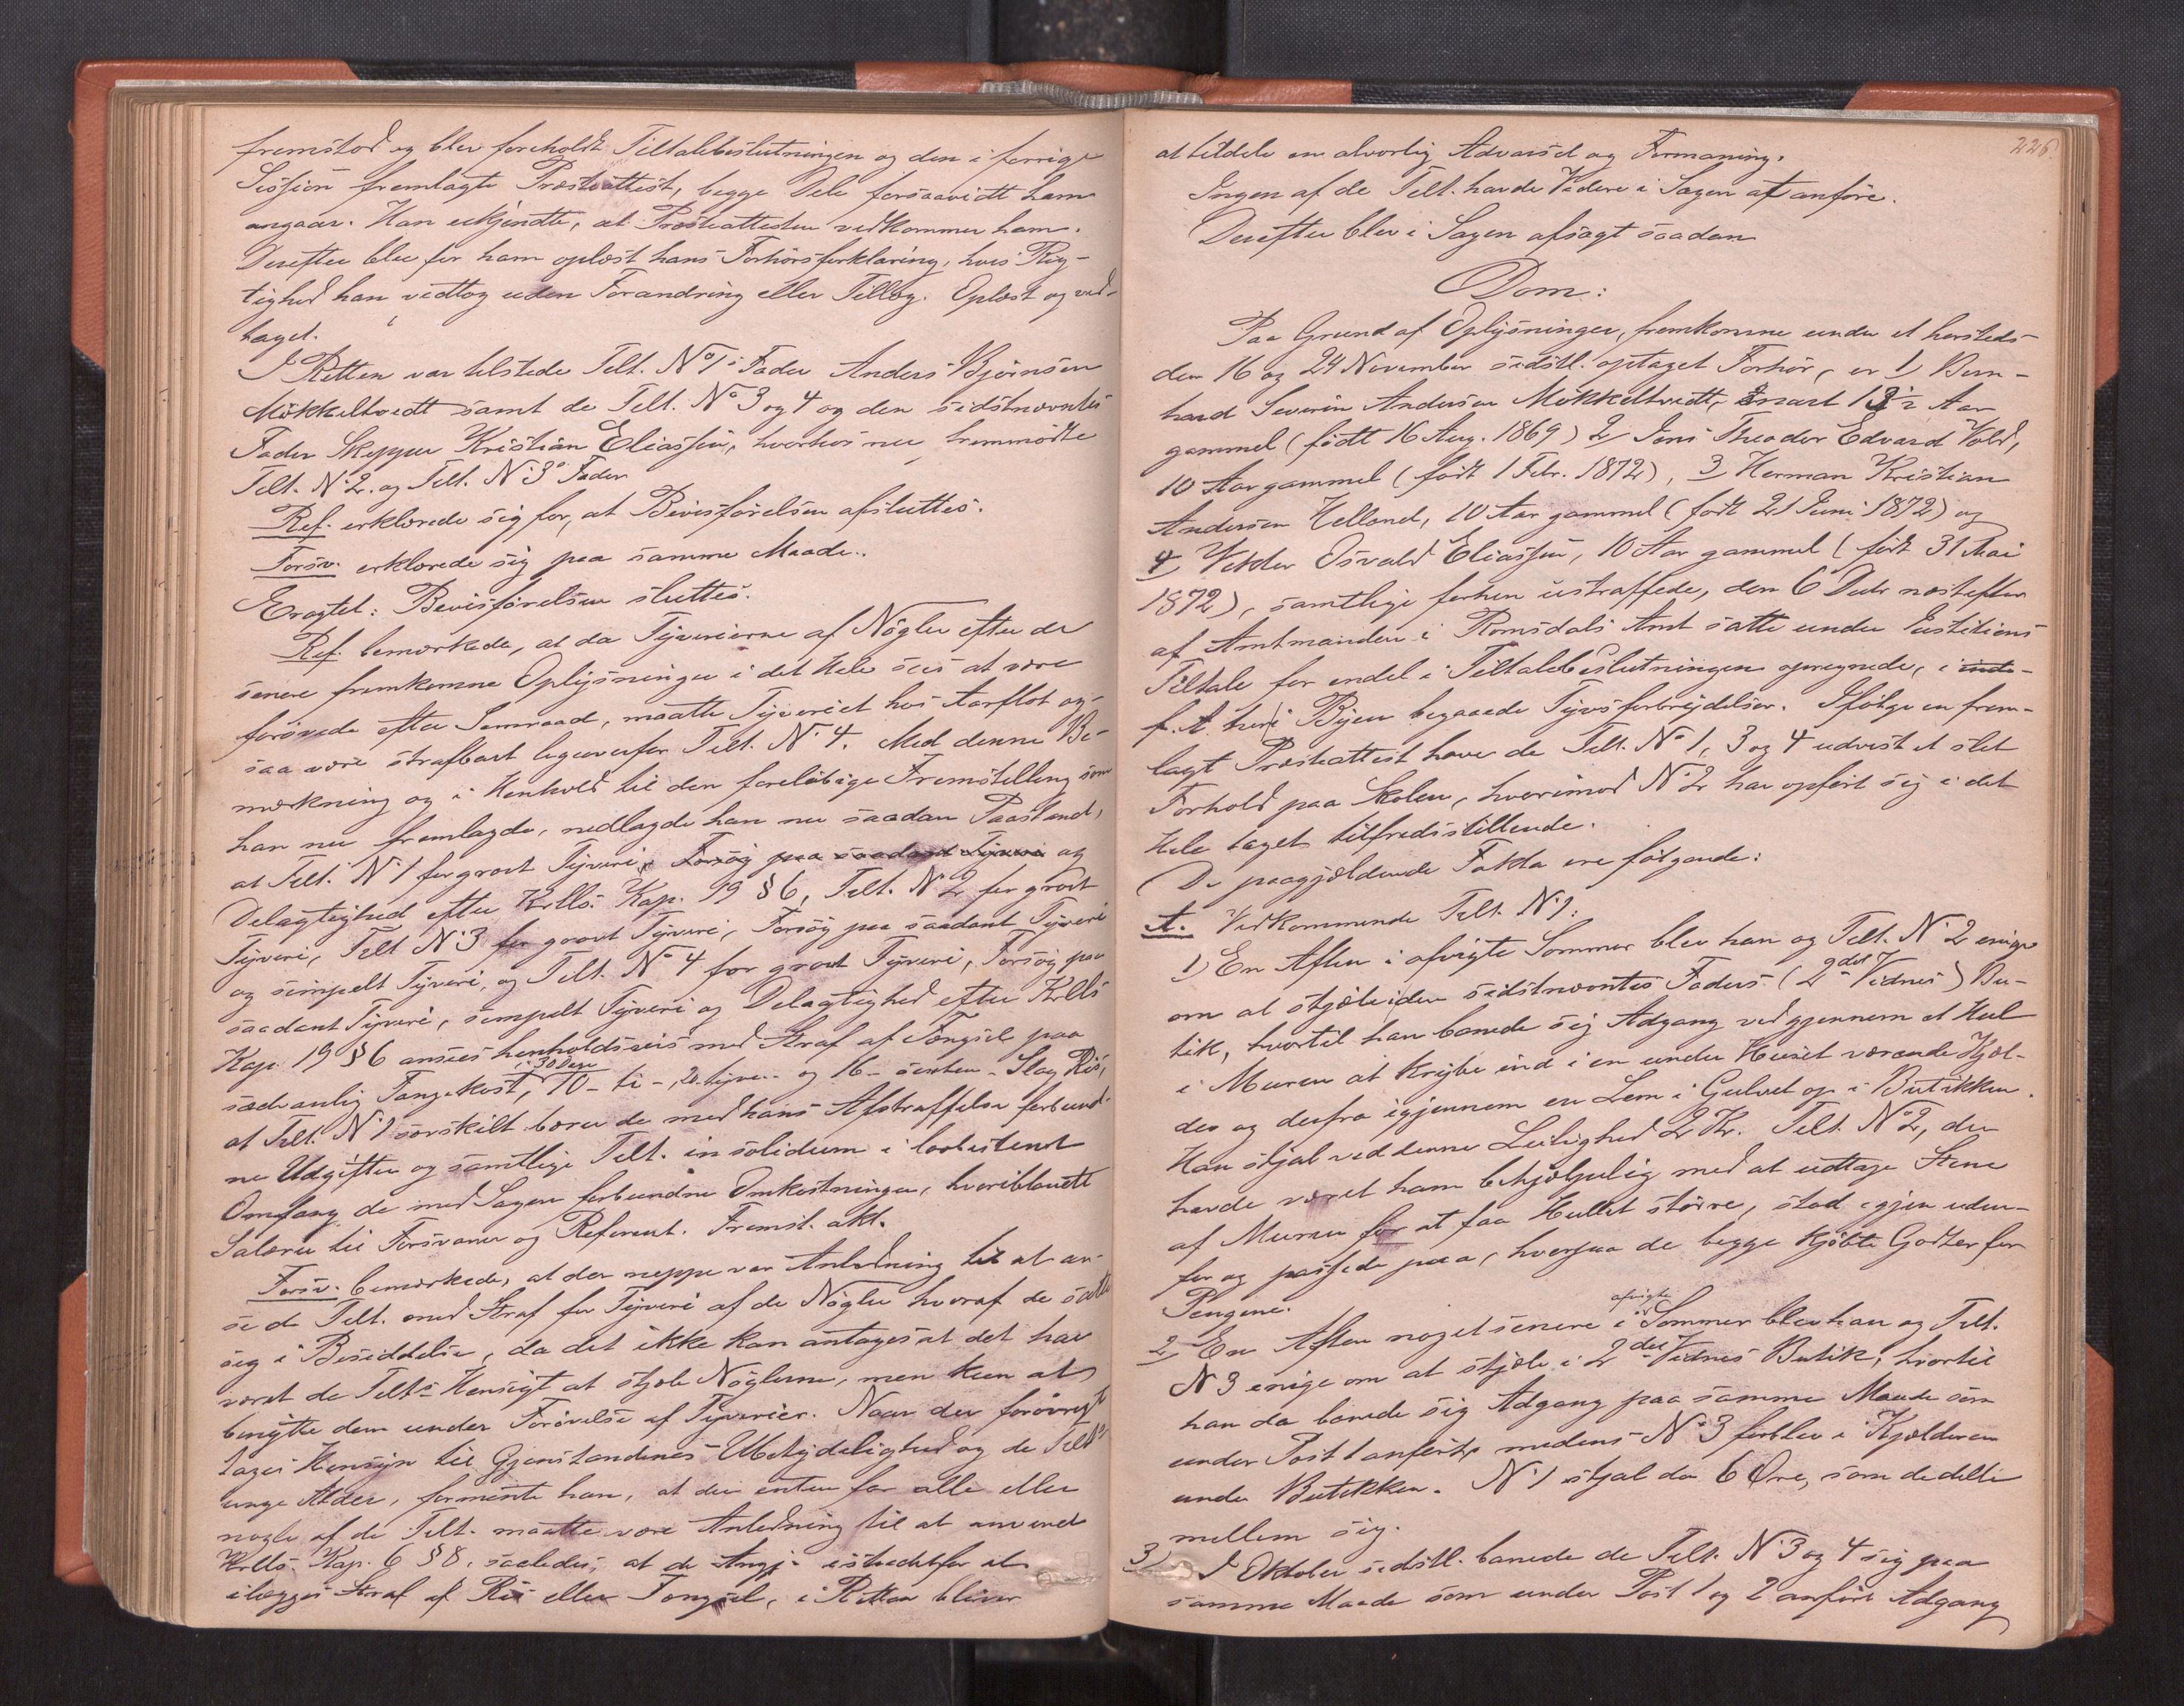 fremstod og blev foreholdt Tiltalebeslutningen og den i forrige
Session fremlagte Præsteattest, begge Dele forsaavidt ham
angaar. Han erkjendte, at Præsteattesten vedkommer ham.
Derefter blev for ham oplæst hans Forhørsforklaring, hvis Rig-
tighed han vedtog uden Forandring eller Tillæg. Oplæst og ved-
taget.
I Retten var tilstede Telt. No 1s Fader Anders Bjørnsen
Mökkeltvedt samt de Telt. No 3 og 4 og den sidstnævntes
Fader Skipper Kristian Eliassen, hvorhos nu fremmødte
Telt. No 2. og Telt. No 3s Fader
Ref. erklærede sig for, at Bevisførelsen afsluttes.
Forsv. erklærede sig paa samme Maade.
Eragtet: Bevisførelsen sluttes.
Ref. bemærkede, at da Tyverierne af Nøgler efter de
senere fremkomne Oplysninger i det Hele sees at være
forøvede efter Samraad, maatte Tyveriet hos Aarflot og-
saa være strafbart ligeoverfor Telt. No 4. Med denne Be-
mærkning og i Henhold til den foreløbige Fremstilling som
han nu fremlagde, nedlagde han nu saadan Paastand,
at Telt. No 1 for grovt Tyveri, Forsøg paa saadant Tyveri og
Delagtighed efter Krlls. Kap. 19 § 6, Telt. No 2 for grovt
Tyveri, Telt No 3 for grovt Tyveri, Forsøg paa saadant Tyveri
og simpelt Tyveri, og Telt. No 4 for grovt Tyveri, Forsøg paa
saadant Tyveri, simpelt Tyveri og Delagtighed efter Krlls
Kap. 19 § 6 ansees henholdsvis med Straf af Fængsel paa
sædvanlig Fangekost, i 30 Dage 10 - ti -, 20. tyve - og 16 - sexten - Slag Ris,
at Telt. No 1 særskilt bærer de med hans Afstraffelse forbund-
ne Udgifter og samtlige Telt. in solidum i lovbestemt
Omfang de med Sagen forbundne Omkostninger, heriblandt
Salærer til Forsvarer og Referent. Fremst. akt.
Forsv. bemærkede, at der neppe var Anledning til at an-
se de Telt. med Straf for Tyveri af de Nøgler hvoraf de satte
sig i Besiddelse, da det ikke kan antages at det har
været de Telts Hensigt at stjæle Nøglerne, men kun at
benytte dem under Forøvelse af Tyverier. Naar der forøvrigt
tages Hensyn til Gjenstandenes Ubetydelighed og de Telts
unge Alder, formente han, at der enten for alle eller
nogle af de Telt. maatte være Anledning til at anvende
Krlls. Kap. 6 § 8, saaledes, at de Angj. istedetfor at
ilægges Straf af Ris eller Fængsel, i Retten bliver
226.
at tildele en alvorlig Advarsel og Formaning.
Ingen af de Telt. havde Videre i Sagen at anføre.
Derefter blev i Sagen afsagt saadan
Dom:
Paa Grund af Oplysninger, fremkomne under et hersteds
den 16 og 24 November sidstl. optaget Forhør, er 1) Bern-
hard Severin Andersen Mökkeltvedt, snart 13½ Aar
gammel (født 16 Aug. 1869) 2 Jens Theodor Edvard Vold,
10 Aar gammel (født 1 Febr. 1872), 3 Herman Kristian
Andersen Helland, 10 Aar gammel (født 21 Juni 1872) og
4 Viktor Osvald Eliassen, 10 Aar gammel (født 31 Mai
1872), samtlige forhen ustraffede, den 6 Decbr næstefter
af Amtmanden i Romsdals Amt satte under Justitiens
Tiltale for endel i Tiltalebeslutningen opregnede, i inde-
f. A. her i Byen begaaede Tyvsforbrydelser. Ifølge en frem-
lagt Præsteattest have de Telt. No 1, 3 og 4 udvist et slet
Forhold paa Skolen, hvorimod No 2 har opført sig i det
Hele taget tilfredsstillende.
De paagjældende Fakta ere følgende:
A. Vedkommende Telt. No 1:
1) En Aften i afvigte Sommer blev han og Telt. No 2 enige
om at stjæle i den sidstnævntes Faders (2det Vidnes) Bu-
tik, hvortil han banede sig Adgang ved gjennem et Hul
i Muren at krybe ind i en under Huset værende Kjæl-
der og derfra igjennem en Lem i Gulvet op i Butikken.
Han stjal ved denne Leilighed 2 Kr. Telt. No 2, der
havde været ham behjælpelig med at udtage Stene
af Muren for at faa Hullet større, stod igjen uden-
for og passede paa, hvorpaa de begge kjøbte Godter for
Pengene.
2 En Aften noget senere i afvigte Sommer blev han og Telt.
No 3 enige om at stjæle i 2det Vidnes Butik, hvortil
han da banede sig Adgang paa samme Maade som
under Post 1 anført, medens No 3 forblev i Kjælderen
under Butikken. No 1 stjal da 6 Øre, som de delte
mellem sig.
3) I Oktober sidstl. banede de Telt. No 3 og 4 sig paa
samme Maade som under Post 1 og 2 anført Adgang